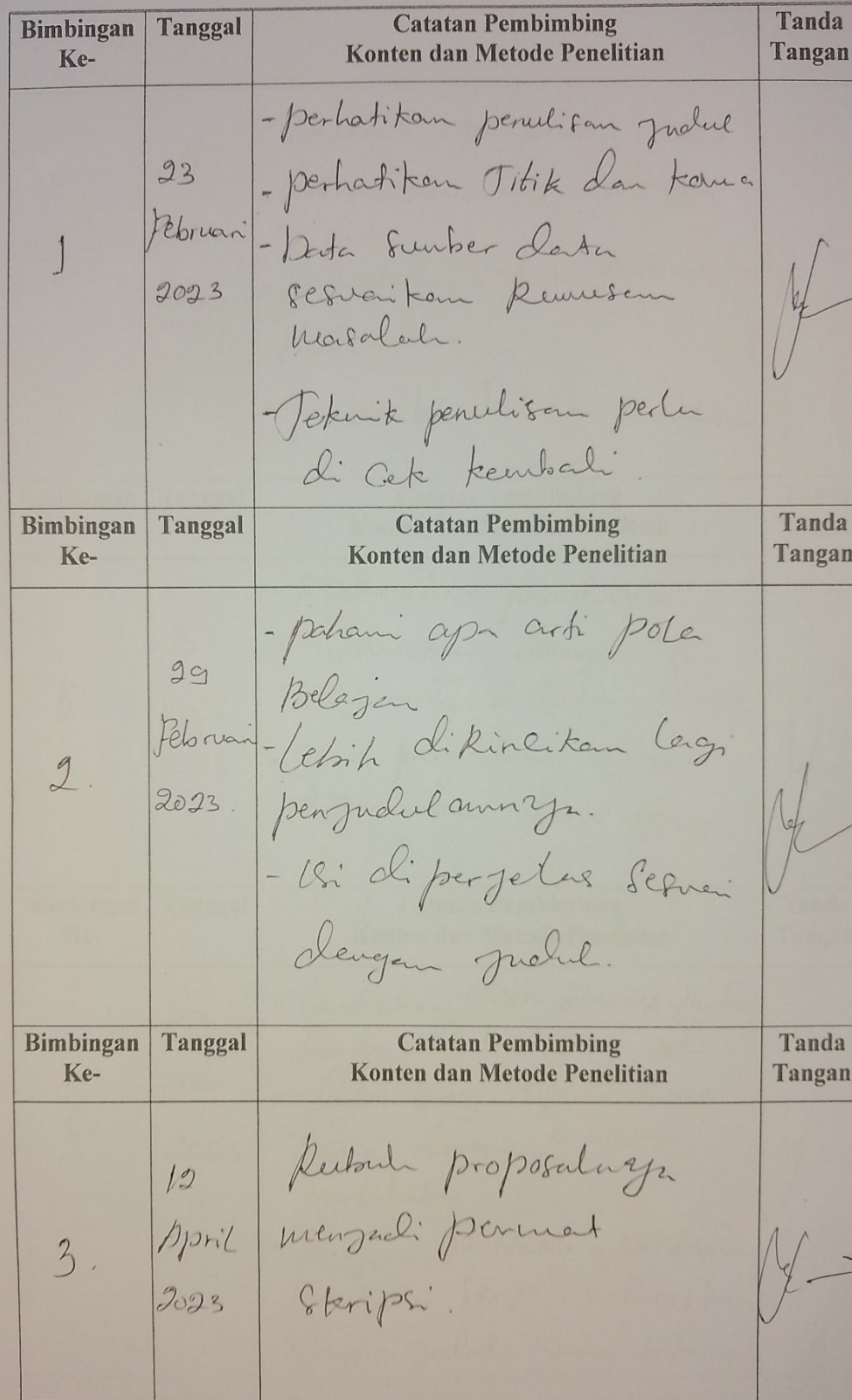 Bimbingan Ke- Tanggal Catatan Pembimbing Konten dan Metode Penelitian Tanda Tangan
1
23
Februari
2023
- perhatikan penulisan judul
- perhatikan Titik dan koma
- Data sumber data
sesuaikan Rumusan
masalah.
- Teknik penulisan perlu
di Cek kembali.
Bimbingan Ke- Tanggal Catatan Pembimbing Konten dan Metode Penelitian Tanda Tangan
2.
29
Februari
2023.
- pahami apa arti pola
Belajar
- Lebih dirincikan lagi
penjudulannya.
- isi di perjelas sesuai
dengan judul.
Bimbingan Ke- Tanggal Catatan Pembimbing Konten dan Metode Penelitian Tanda Tangan
3.
12
April
2023
Rubah proposalnya
menjadi permat
Skripsi.